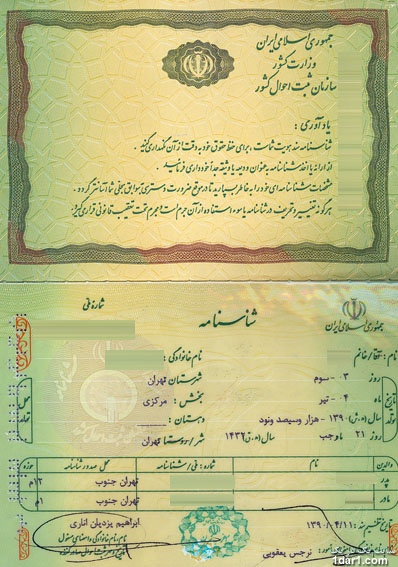 جمهوری اسلامی ایران
وزارت کشور
سازمان ثبت احوال کشور
یادآوری :
شناسنامه سند هویت شماست، برای حفظ حقوق خود به دقت از آن نگهداری کنید.
از ارائه یا اخذ شناسنامه به عنوان ودیعه یا وثیقه جداً خودداری فرمائید.
مشخصات شناسنامه ای خود را به خاطر بسپارید تا در موقع ضرورت دسترسی به سوابق سجلی شما آسانتر گردد.
هرگونه تغییر و تحریف در شناسنامه یا سوء استفاده از آن جرم است و مجرم تحت تعقیب قانونی قرار می گیرد.
جمهوری اسلامی ایران
شناسنامه
شماره ملی
نام: آقا/خانم
نام خانوادگی:
روز ۳ - سوم
شهرستان تهران
ماه ۴ - تیر
بخش: مرکزی
سال (ه.ش) ۱۳۹۰ - هزار و سیصد و نود
دهستان:
روز ۲۱ ماه رجب سال (ه.ق) ۱۴۳۲
شهر/روستا تهران
تاریخ تولد
محل تولد
والدین نام شماره: ملی/شناسنامه محل صدور شناسنامه حوزه
پدر تهران جنوب ۱۲م
مادر تهران جنوب ۱م
تاریخ تنظیم سند ۱۳۹۰/۰۴/۱۱
ابراهیم یزدیان اناری
نام، نام خانوادگی و امضای مسئول
نرجس یعقوبی
1dar1.com